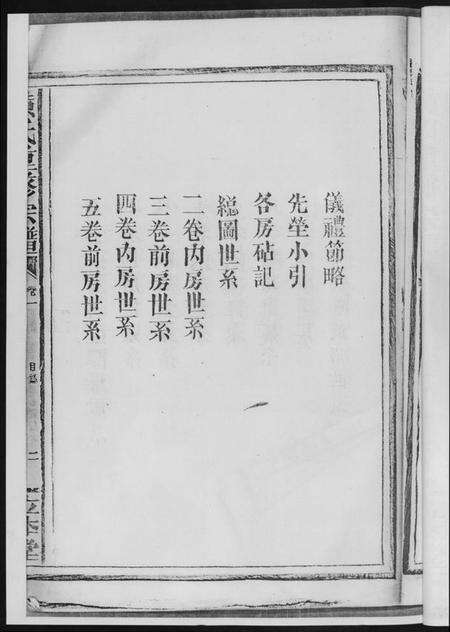 儀禮節略
先塋小引
各房砧記
總圖世系
二卷內房世系
三卷前房世系
四卷內房世系
五卷前房世系
氏重修宗譜
卷一
目錄
二
立本堂